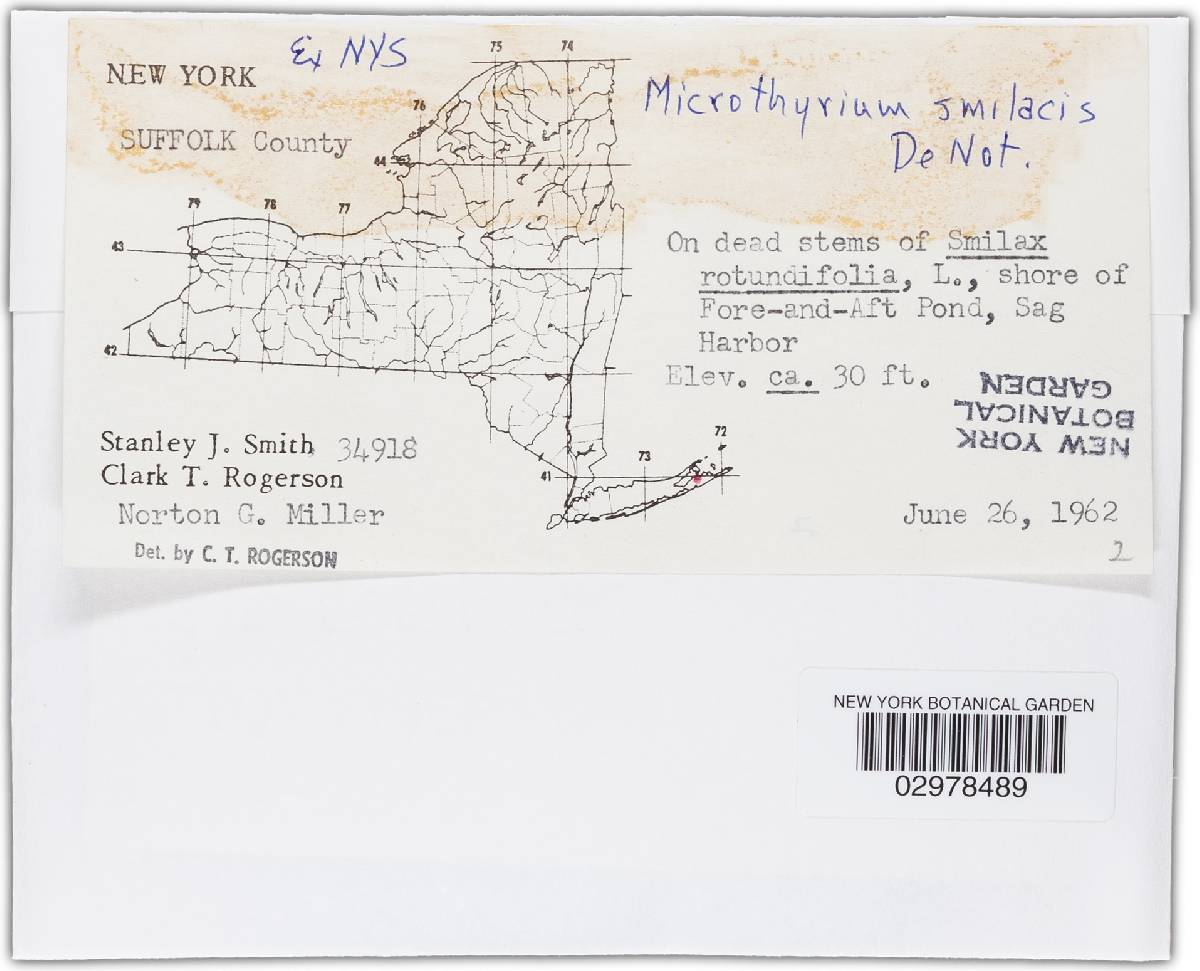 Ex NYS
NEW YORK
SUFFOLK County
Microthyrium smilacis
De Not.
75 74
76
44
79 78 77
43
42
On dead stems of Smilax
rotundifolia, L., shore of
Fore-and-Aft Pond, Sag
Harbor
Elev. ca. 30 ft.
NEW YORK
BOTANICAL
GARDEN
72
73
41
Stanley J. Smith 34918
Clark T. Rogerson
Norton G. Miller
Det. by C. T. ROGERSON
June 26, 1962
2
NEW YORK BOTANICAL GARDEN
02978489